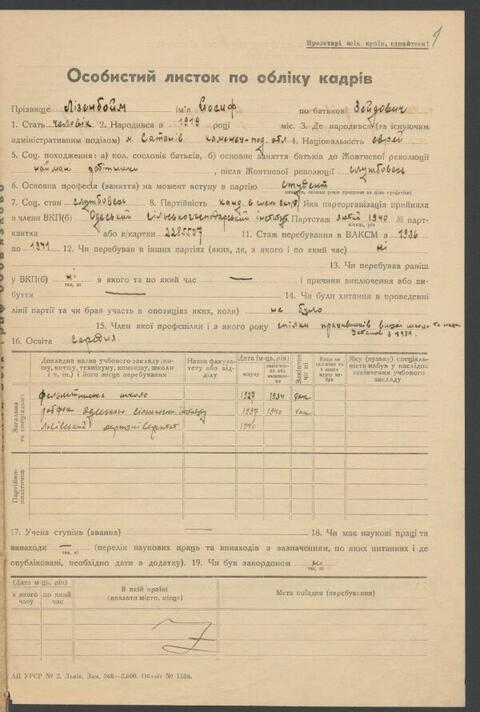 Пролетарі всіх країн, єднайтеся!
Особистий листок по обліку кадрів
Прізвище Лізенбойм ім'я Йосиф по батькові Зейдович
1. Стать чоловік 2. Народився в 1919 році міс. 3. Де народився (за існуючим
адміністративним поділом) м. Сатанів Камянець-под. обл 4. Національність єврей
5. Соц. походження: а) кол. сословіє батьків, б) основне заняття батьків до Жовтневої революції
, після Жовтневої революції службовець
6. Основна професія (заняття) на момент вступу в партію студент
7. Соц. стан службовець 8. Партійність Яка парторганізація прийняла
в члени ВКП(б) Одеський сільськогосподарський інститут Партстаж 1940 № парт-
квитка або к/картки 2285507 11. Стаж перебування в ВЛКСМ з 1936
по 1941 12. Чи перебував в інших партіях (яких, де, з якого і по який час) ні
13. Чи перебував раніш
у ВКП(б) ні з якого та по який час — і причини виключення або ви-
буття — 14. Чи були хитання в проведенні
лінії партії та чи брав участь в опозиціях яких, коли) не було
15. Член якої профспілки і з якого року спілки працівників вищої школи
16. Освіта середня
Докладна назва учбового закладу (ви-
шу, втузу, технікуму, комвишу, школи
і т. ін.) і його місце перебування
Назва факуль-
тету або від-
ділу
Дата (м-ць, рік)
вступу
Закінчив
чи ні
Яку (вузьку) спеціаль-
ність набув у наслідок
закінчення учбового
закладу
Загальна
та спеціальна
школа 1927 1934 так
робфак одеського інституту 1937 1940 так
Львівський 1940
Партійно-
політична
17. Учена ступінь (звання) — 18. Чи має наукові праці та
винаходи — (перелік наукових праць та винаходів з зазначенням, по яких питаннях і де
опубліковані, необхідно дати в додатку). 19. Чи був закордоном ні
Дата (м-ць, рік)
з якого
часу
по який
час
В якій країні
(вказати місто, місце)
Мета поїздки (перебування)
АЦ УРСР № 2. Львів. Зам. 368—2.000. Обліт № 1586.